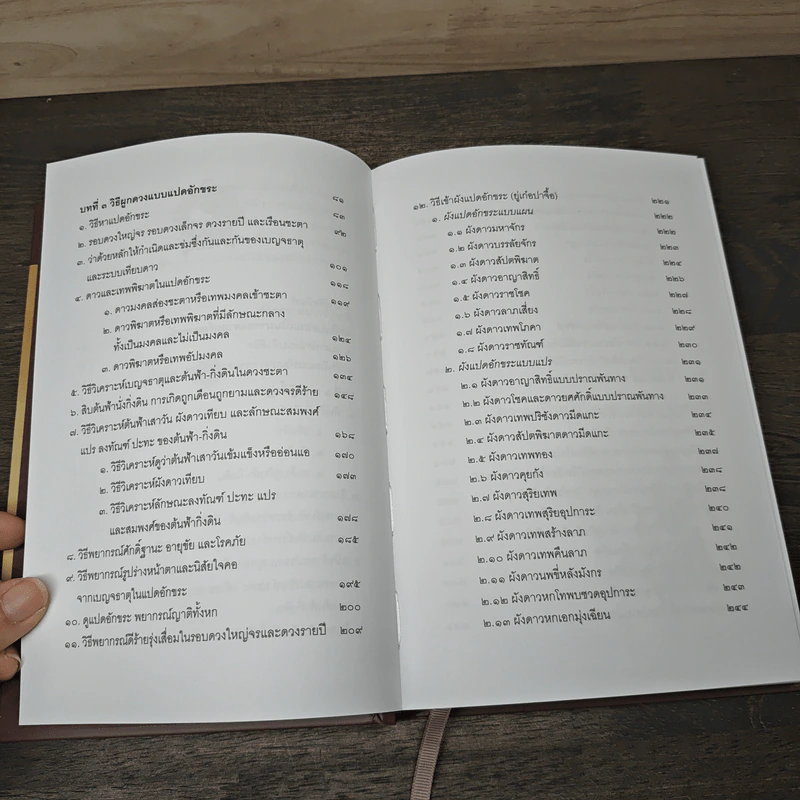 บทที่ ๓ วิธีผูกดวงแบบแปดอักขระ ๘๑
๑. วิธีหาแปดอักขระ ๘๓
๒. รอบดวงใหญ่จร รอบดวงเล็กจร ดวงรายปี และเรือนชะตา ๙๒
๓. ว่าด้วยหลักให้กำเนิดและข่มซึ่งกันและกันของเบญจธาตุ
และระบบเทียบดาว ๑๐๑
๔. ดาวและเทพพิฆาตในแปดอักขระ ๑๑๘
๑. ดาวมงคลส่องชะตาหรือเทพมงคลเข้าชะตา ๑๑๙
๒. ดาวพิฆาตหรือเทพพิฆาตที่มีลักษณะกลาง
ทั้งเป็นมงคลและไม่เป็นมงคล ๑๒๔
๓. ดาวพิฆาตหรือเทพอัปมงคล ๑๒๖
๕. วิธีวิเคราะห์เบญจธาตุและต้นฟ้า-กิ่งดินในดวงชะตา ๑๓๔
๖. สิบต้นฟ้านั่งกิ่งดิน การเกิดถูกเดือนถูกยามและดวงจรดีร้าย ๑๔๘
๗. วิธีวิเคราะห์ต้นฟ้าเสาวัน ผังดาวเทียบ และลักษณะสมพงศ์
แปร ลงทัณฑ์ ปะทะ ของต้นฟ้า-กิ่งดิน ๑๖๘
๑. วิธีวิเคราะห์ดูว่าต้นฟ้าเสาวันเข้มแข็งหรืออ่อนแอ ๑๗๐
๒. วิธีวิเคราะห์ผังดาวเทียบ ๑๗๓
๓. วิธีวิเคราะห์ลักษณะลงทัณฑ์ ปะทะ แปร
และสมพงศ์ของต้นฟ้ากิ่งดิน ๑๗๘
๘. วิธีพยากรณ์ศักดิ์ฐานะ อายุขัย และโรคภัย ๑๘๕
๙. วิธีพยากรณ์รูปร่างหน้าตาและนิสัยใจคอ
จากเบญจธาตุในแปดอักขระ ๑๙๕
๑๐. ดูแปดอักขระ พยากรณ์ญาติทั้งหก ๒๐๐
๑๑. วิธีพยากรณ์ดีร้ายรุ่งเสื่อมในรอบดวงใหญ่จรและดวงรายปี ๒๐๙
๑๒. วิธีเข้าผังแปดอักขระ (ยู่เก๋อปาจื้อ) ๒๒๑
๑. ผังแปดอักขระแบบแผน ๒๒๒
๑.๑ ผังดาวมหาจักร ๒๒๒
๑.๒ ผังดาวบรรลัยจักร ๒๒๓
๑.๓ ผังดาวสัปตพิฆาต ๒๒๔
๑.๔ ผังดาวอาญาสิทธิ์ ๒๒๖
๑.๕ ผังดาวราชโชค ๒๒๗
๑.๖ ผังดาวลาภเสี่ยง ๒๒๘
๑.๗ ผังดาวเทพโภคา ๒๒๙
๑.๘ ผังดาวราชทัณฑ์ ๒๓๐
๒. ผังแปดอักขระแบบแปร ๒๓๑
๒.๑ ผังดาวอาญาสิทธิ์แบบปราณพันทาง ๒๓๑
๒.๒ ผังดาวโชคและดาวยศศักดิ์แบบปราณพันทาง ๒๓๓
๒.๓ ผังดาวเทพปรีชังดาวมีดแกะ ๒๓๔
๒.๔ ผังดาวสัปตพิฆาตดาวมีดแกะ ๒๓๕
๒.๕ ผังดาวเทพทอง ๒๓๗
๒.๖ ผังดาวคุยกัง ๒๓๘
๒.๗ ผังดาวสุริยเทพ ๒๓๘
๒.๘ ผังดาวเทพสุริยอุปการะ ๒๔๐
๒.๙ ผังดาวเทพสร้างลาภ ๒๔๑
๒.๑๐ ผังดาวเทพคืนลาภ ๒๔๒
๒.๑๑ ผังดาวนพขี่หลังมังกร ๒๔๒
๒.๑๒ ผังดาวหกโทพบชวดอุปการะ ๒๔๓
๒.๑๓ ผังดาวหกเอกมุ่งเฉียน ๒๔๔